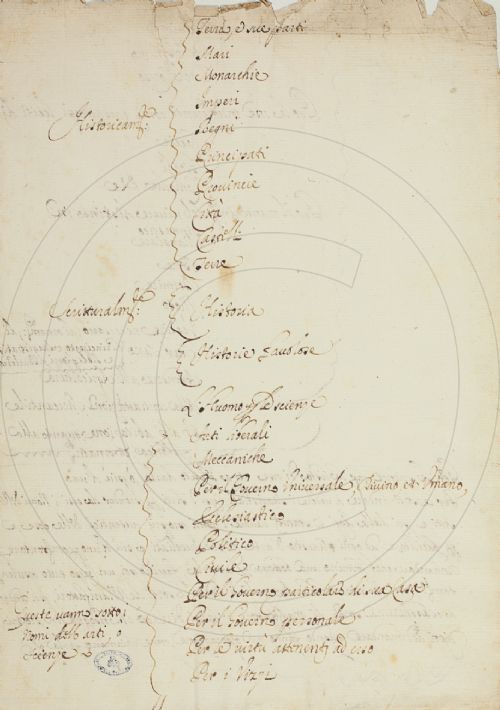 Terra e sue parti
Mari
Monarchie
Imperi
Historicam.te:
Regni
Principati
Provincie
Città
Castelli
Terre
Scritturalm.te:
Historia
Historie favolose
L'Huomo Scienze
Arti liberali
Meccaniche
Per il Governo Universale, Divino et Umano,
Ecclesiastico
Politico
Civile
Per il Governo particolare di sua Casa
Queste vanno sotto i
nomi dell'arti, o
scienze
Per il Governo personale
Per le Virtù attenenti ad esso
Per i Vizzi